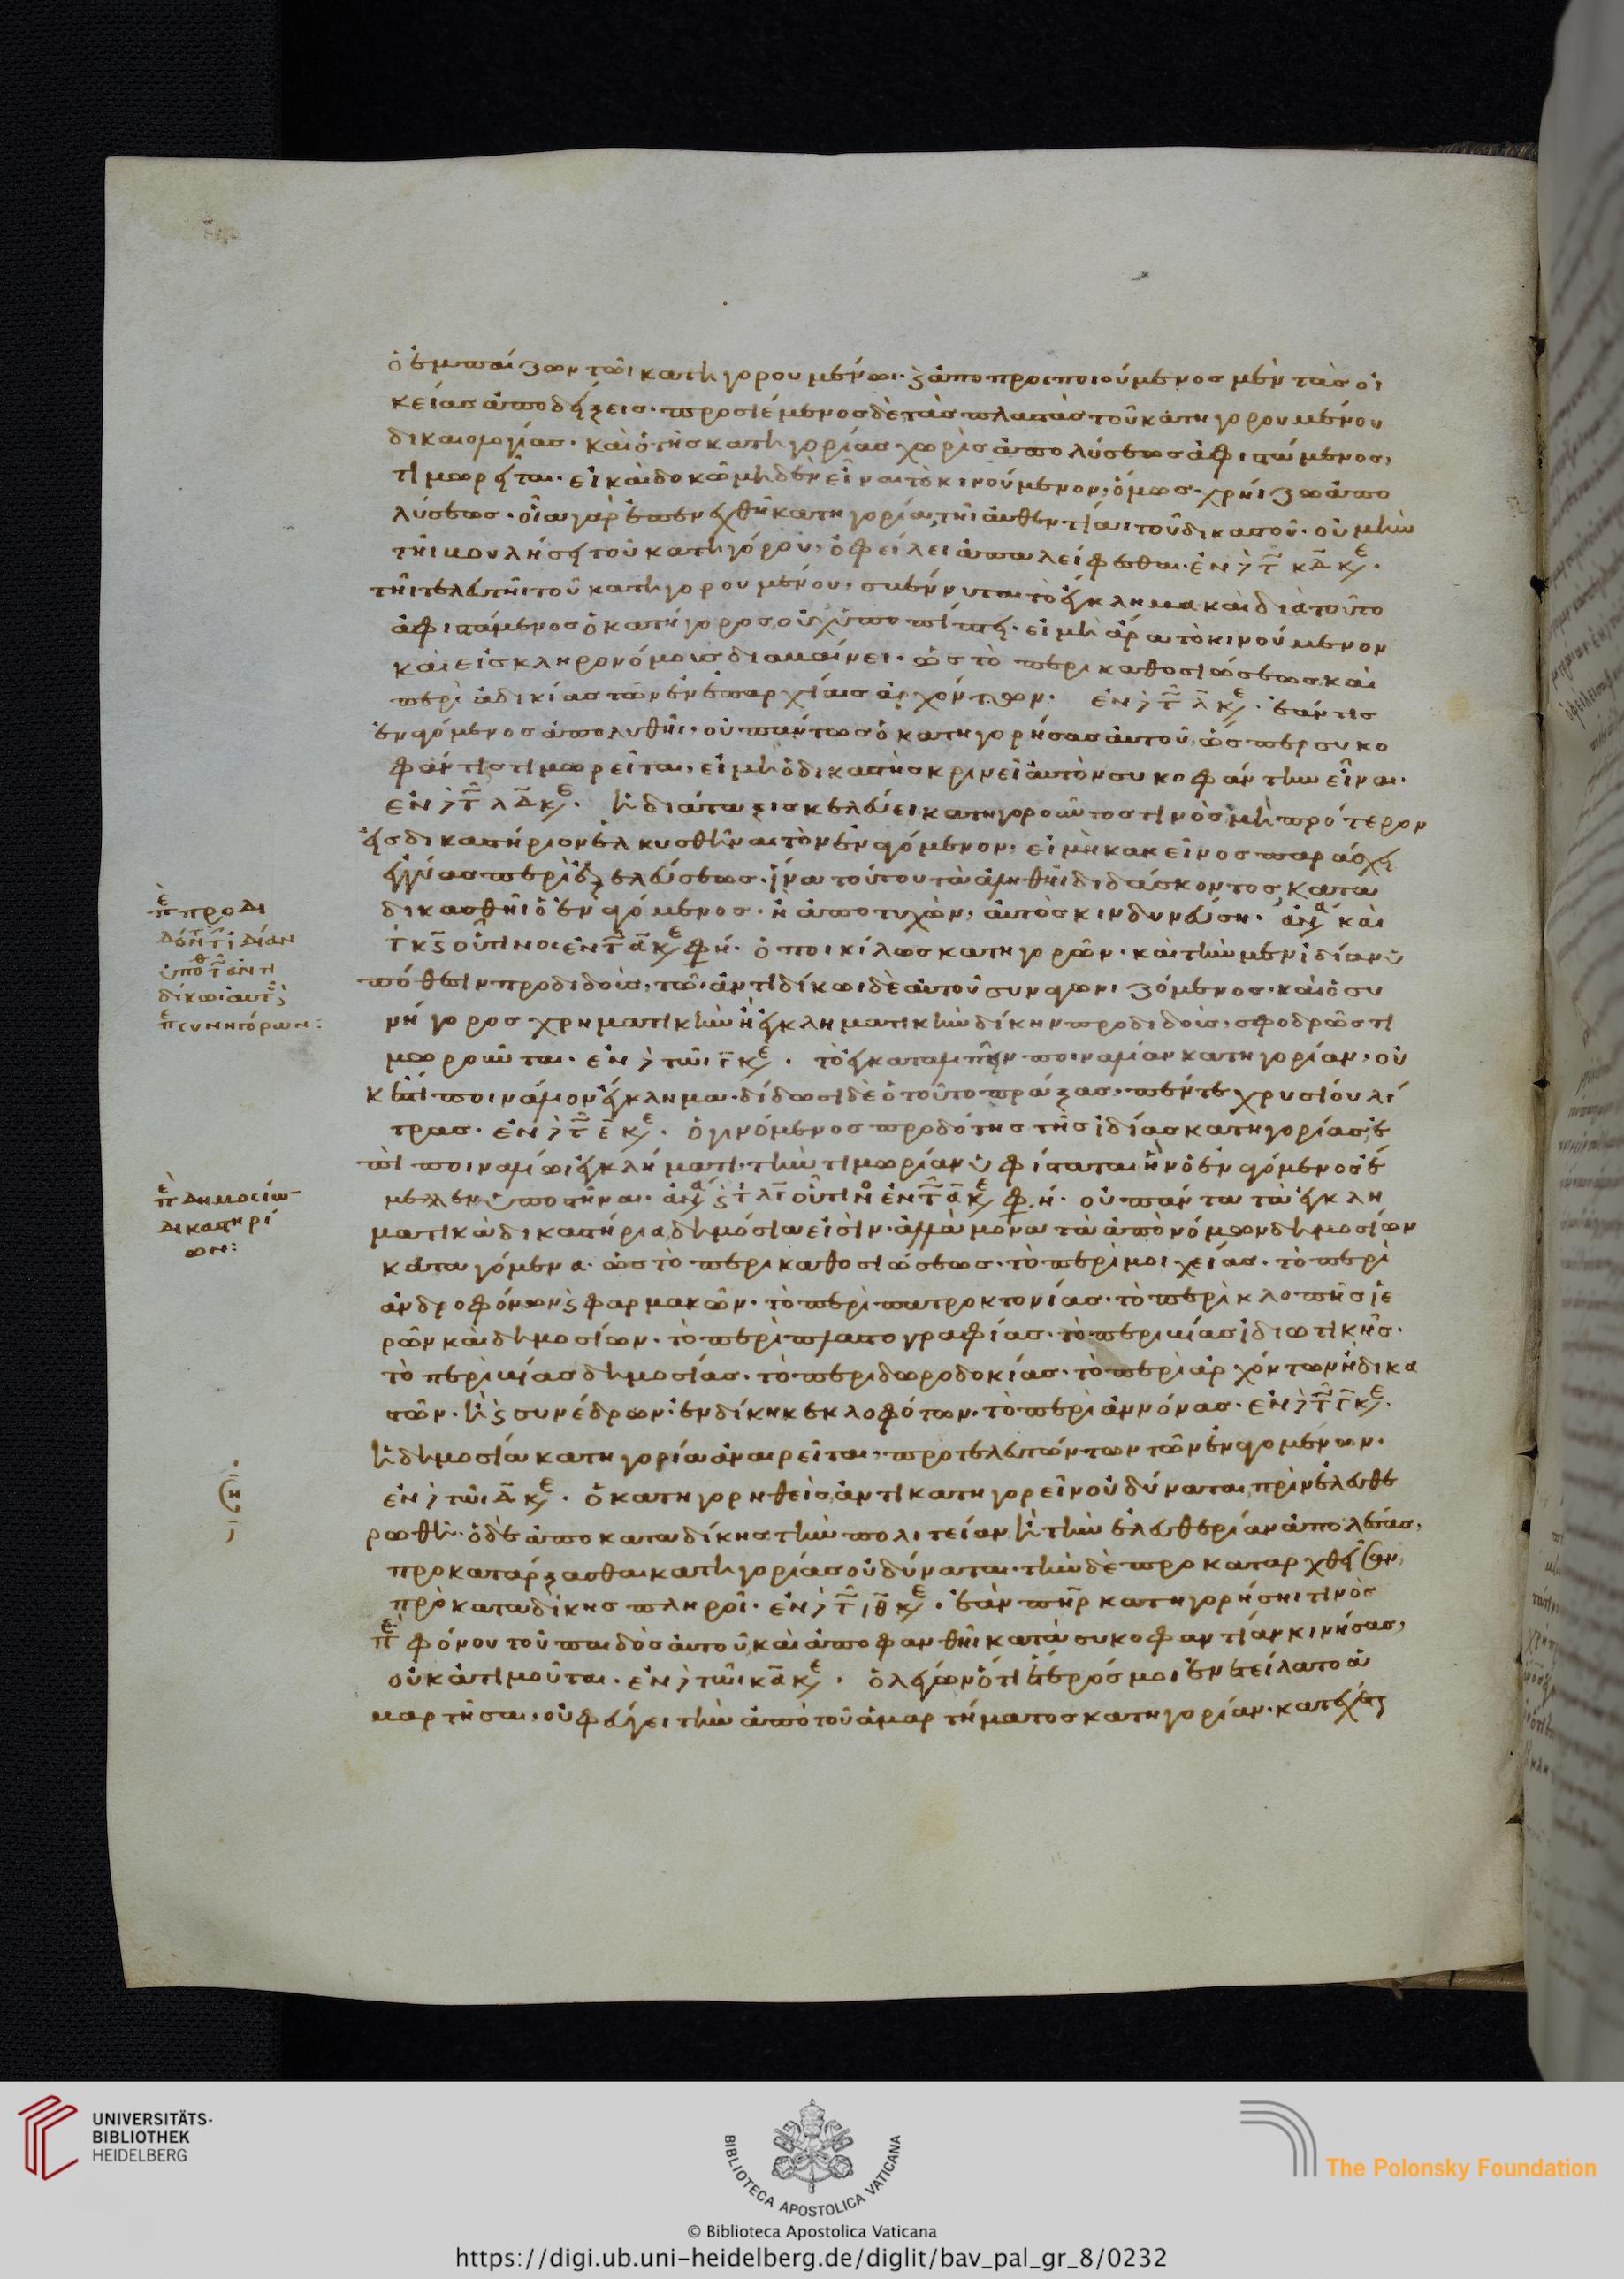 ὁ ἐμπαίζων τῶι κατηγορουμένωι· ϗ ἀποπροσποιούμενος μὲν τὰς οἰ
κείας ἀποδείξεις· προσιέμενος δὲ τὰς πλαστὰς τοῦ κατηγορουμένου
δικαιολογίας· καὶ ὁ τῆς κατηγορίας χωρὶς ἀπολύσεως ἀφιστάμενος,
τιμωρεῖται· εἰ καὶ δοκῶ μηδὲν εἶναι τὸ κινούμενον, ὅμως χρήιζω ἀπο
λύσεως· οἵα γὰρ ἐπενεχθῆ κατηγορία, τῆι αὐθεντίαι τοῦ δικαστοῦ· οὐ μὴν
τῆι βουλήσει τοῦ κατηγόρου, ὀφείλει ἀπαλείφεσθαι· ἐν
τῆι τελευτῆι τοῦ κατηγορουμένου, σβέννυται τὸ ἔγκλημα καὶ διὰ τοῦτο
ἀφιστάμενος ὁ κατήγορος, οὐχ ὑποπίπτει· εἰ μὴ ἄρα τὸ κινούμενον
καὶ εἰς κληρονόμους διαβαίνει· ὡς τὸ περὶ καθοσιώσεως καὶ
περὶ ἀδικίας τῶν ἐν ἐπαρχίαις ἀρχόντων· ἐὰν τις
ἐναγόμενος ἀπολυθῆι· οὐ πάντως ὁ κατηγορήσας αὐτοῦ, ὥσπερ συκο
φάντης τιμωρεῖται, εἰ μὴ ὁ δικαστὴς κρινεῖ αὐτὸν συκοφάντην εἶναι·
ἡ διάταξις κελεύει κατηγοροῦντος τινὸς μὴ πρότερον
εἰς δικαστήριον ἑλκυσθῆναι τὸν ἐναγόμενον, εἰ μὴ κἀκεῖνος παράσχη
ἐγγύας περὶ ἐξελεύσεως· ἵνα τούτου τὰ ἀληθῆ διδάσκοντος κατα
δικασθῆι ὁ ἐναγόμενος· ἢ ἀποτυχὼν, αὐτὸς κινδυνεύση· καὶ
ὁ ποικίλως κατηγορῶν· καὶ τὴν μὲν ἰδίαν ὑ
πόθεσιν προδιδοὺς, τῶι ἀντιδίκωι δὲ αὐτοῦ συναγωνιζόμενος· καὶ ὁ συ
νήγορος χρηματικὴν ἢ ἐγκληματικὴν δίκην προδιδοὺς, σφοδρῶς τι
μωροῦνται· τὸ ἐγκαταλιπεῖν ποιναλίαν κατηγορίαν, οὐ
κ ἔστι ποινάλιον ἔγκλημα· δίδωσι δὲ ὁ τοῦτο πράξας, πέντε χρυσίου λί
τρας· ὁ γινόμενος προδότης τῆς ἰδίας κατηγορίας, ἐ
πὶ ποιναλίωι ἐγκλήματι, τὴν τιμωρίαν ὑφίσταται ἣν ὁ ἐναγόμενος ἔ
μελλεν ὑποστῆναι· οὐ πάντα τὰ ἐγκλη
ματικὰ δικαστήρια, δημόσια εἰσίν· ἀλλὰ μόνα τὰ ἀπὸ νόμων δημοσίων
καταγόμενα· ὡς τὸ περὶ καθοσιώσεως· τὸ περὶ μοιχείας· τὸ περὶ
ἀνδροφόνων ϗ φαρμακῶν· τὸ περὶ πατροκτονίας· τὸ περὶ κλοπῆς ἱε
ρῶν καὶ δημοσίων· τὸ περὶ πλαστογραφίας· τὸ περὶ βίας ἰδιωτικῆς·
τὸ περὶ βίας δημοσίας· τὸ περὶ δωροδοκίας· τὸ περὶ ἀρχόντων ἢ δικα
στῶν· ἢ ϗ συνέδρων· ἐν δίκη κεκλοφότων· τὸ περὶ ἀννόνας·
ἡ δημοσία κατηγορία ἀναιρεῖται, προτελευτώντων τῶν ἐναγομένων·
ὁ κατηγορηθεὶς, ἀντικατηγορεῖν οὐ δύναται, πρὶν ἐλευθε
ρωθῆ· ὁ δὲ ἀπὸ καταδίκης τὴν πολιτείαν ἢ τὴν ἐλευθερίαν ἀπολέσας,
προκατάρξασθαι κατηγορίας οὐ δύναται· τὴν δὲ προκαταρχθεῖσαν,
πρὸ καταδίκης πληροῖ· ἐὰν πηρ κατηγορήσηι τινὸς
π φόνου τοῦ παιδὸς αὐτοῦ, καὶ ἀποφανθῆι κατὰ συκοφαντίαν κινήσας,
οὐκ ἀτιμοῦται· ὁ λέγων ὅτι ἕτερός μοι ἐνετείλατο ἁ
μαρτῆσαι, οὐ φεύγει τὴν ἀπὸ τοῦ ἁμαρτήματος κατηγορίαν· κατέχετ
π προδι
δόντ ἰδίαν
ὑπόθ τ ἀντι
δίκωι αὐτ ϗ
π συνηγόρων:
π δημοσίω
δικαστηρί
ων:
UNIVERSITÄTS-
BIBLIOTHEK
HEIDELBERG
BIBLIOTECA APOSTOLICA VATICANA
The Polonsky Foundation
© Biblioteca Apostolica Vaticana
https://digi.ub.uni-heidelberg.de/diglit/bav_pal_gr_8/0232